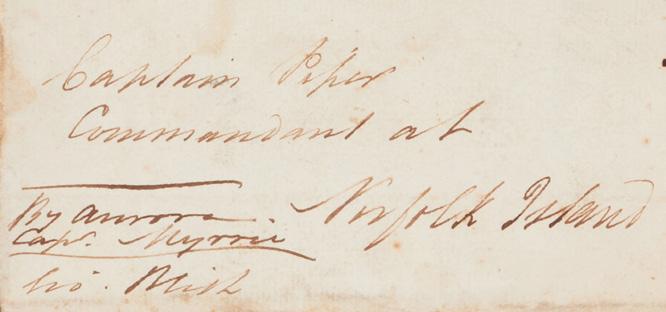 Captain Piper
Commandant at
Norfolk Island
By Aurora
Capt. Myrric
Gov. Bligh